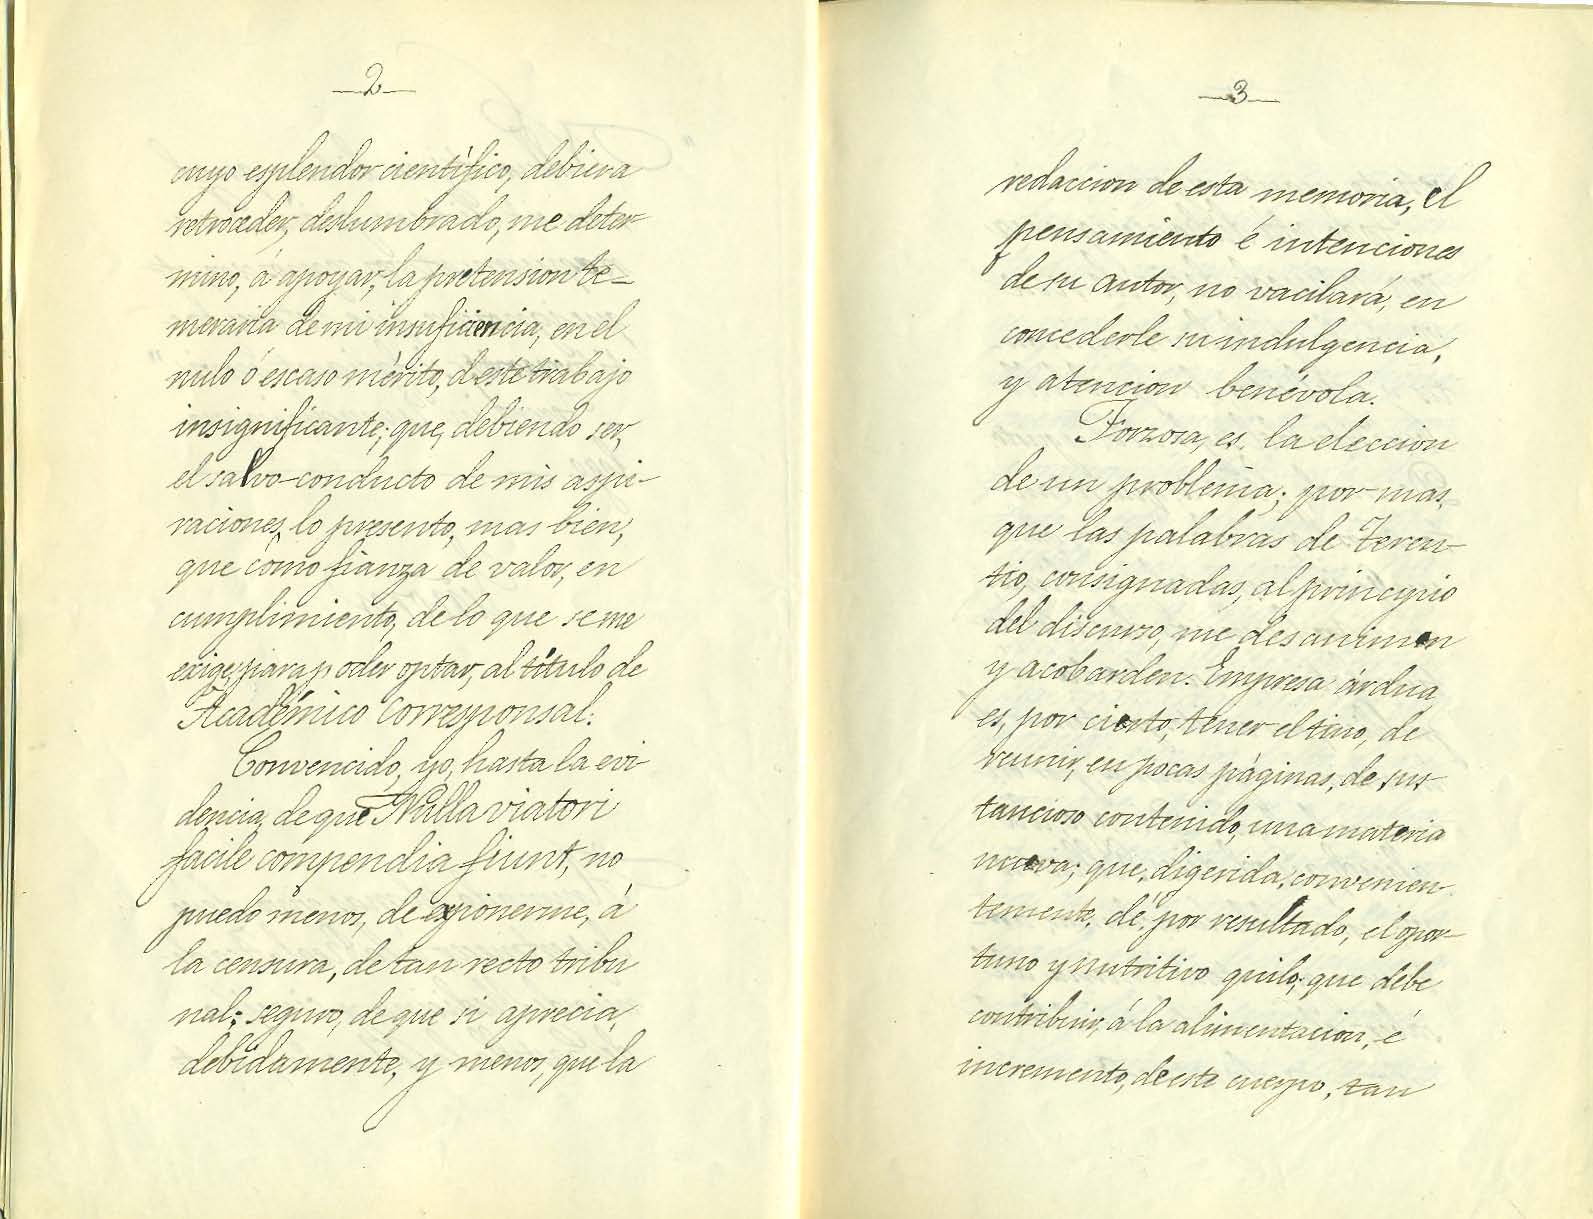 —2—
cuyo esplendor científico, debiera
retroceder, deslumbrado, me deter-
mino, á apoyar, la pretension te-
meraria de mi insuficiencia, en el
nulo ó escaso mérito, d este trabajo
insignificante; que, debiendo ser,
el salvo-conducto de mis aspi-
raciones, lo presento, mas bien,
que como fianza de valor, en
cumplimiento, de lo que se me
exige, para poder optar, al título de
Académico Corresponsal.
Convencido, yo, hasta la evi-
dencia, de que Nulla viatori
facile compendia fiunt, no
puedo menos, de exponerme, á
la censura, de tan recto tribu
nal; seguro, de que si aprecia,
debidamente, y menos, que la
—3—
redaccion de esta memoria, el
pensamiento é intenciones
de su autor, no vacilará, en
concederle su indulgencia,
y atencion benévola.
Forzosa, es, la eleccion
de un problema; por mas,
que las palabras de Teren-
tio, consignadas, al principio
del discurso, me desanimen
y acobarden. Empresa árdua
es, por cierto, tener el tino, de
reunir, en pocas páginas, de sus-
tancioso contenido, una materia
nueva; que, digerida, convenien-
temente, dé, por resultado, el opor-
tuno y nutritivo quilo; que debe
contribuir, á la alimentacion, é
incremento, de este cuerpo, tan